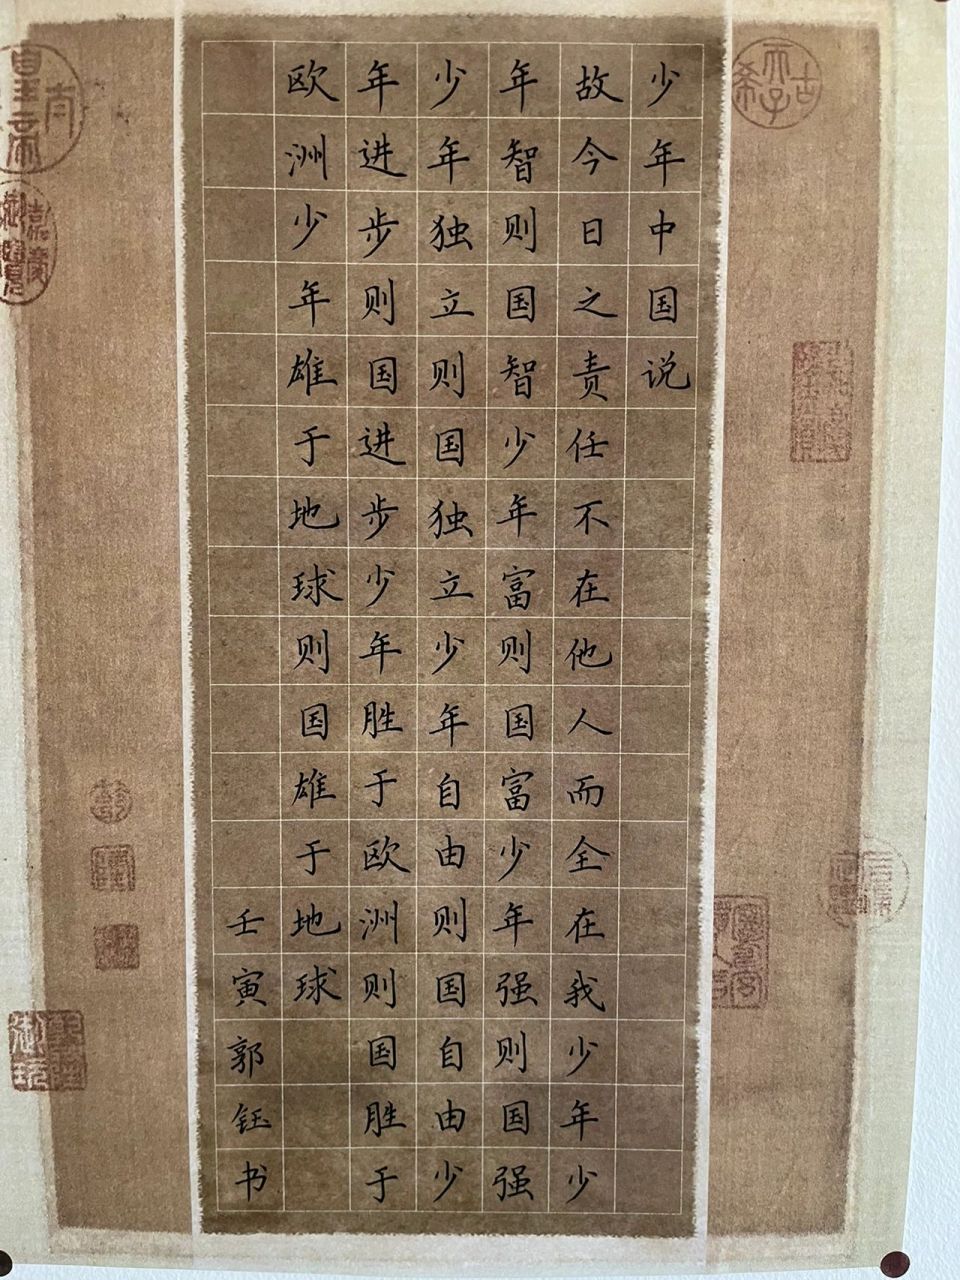 少年中国说
故今日之责任不在他人而全在我少年少
年智则国智少年富则国富少年强则国强
少年独立则国独立少年自由则国自由少
年进步则国进步少年胜于欧洲则国胜于
欧洲少年雄于地球则国雄于地球
壬寅郭钰书
古希天子